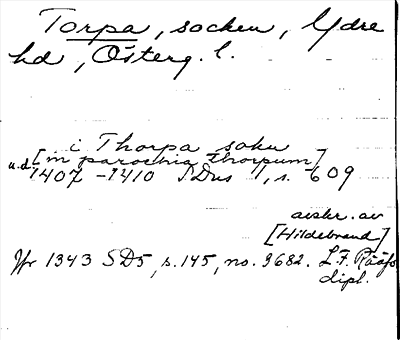 Torpa, socken, Ydre
hd, Österg. l.
i Thorpa sokn
u.d. [in parochia thorpum]
1407 - 1410 SDns 1, s. 609
avskr. av
[Hildebrand]
Jfr 1343 SD5, s. 145, no. 3682. L.F. Rääfs
dipl.